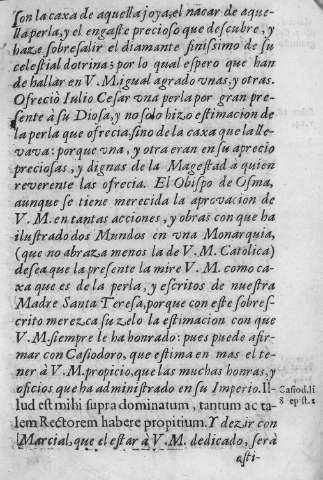 son la caxa de aquella joya, el nacar de aque-
lla perla, y el engaste precioso que descubre, y
haze sobresalir el diamante finissimo de su
celestial dotrina: por lo qual espero que han
de hallar en V. M. igual agrado vnas, y otras.
Ofreciò Iulio Cesar vna perla por gran pre-
sente à su Diosa, y no solo hizo estimacion de
la perla que ofrecia, sino de la caxa que la lle-
vava: porque vna, y otra eran en su aprecio
preciosas, y dignas de la Magestad à quien
reverente las ofrecia. El Obispo de Osma,
aunque se tiene merecida la aprovacion de
V. M. en tantas acciones, y obras con que ha
ilustrado dos Mundos en vna Monarquia,
(que no abraza menos la de V. M. Catolica)
desea que la presente la mire V. M. como ca-
xa que es de la perla, y escritos de nuestra
Madre Santa Teresa, porque con este sobres-
crito merezca su zelo la estimacion con que
V. M. siempre le ha honrado: pues puede afir-
mar con Casiodoro, que estima en mas el te-
ner à V. M. propicio, que las muchas honras, y
oficios que ha administrado en su Imperio. Il-
lud est mihi supra dominatum, tantum ac ta-
lem Rectorem habere propitium. Y dezir con
Marcial, que el estar à V. M. dedicado, serà
asti-
Casiod. li
8 epist. 1